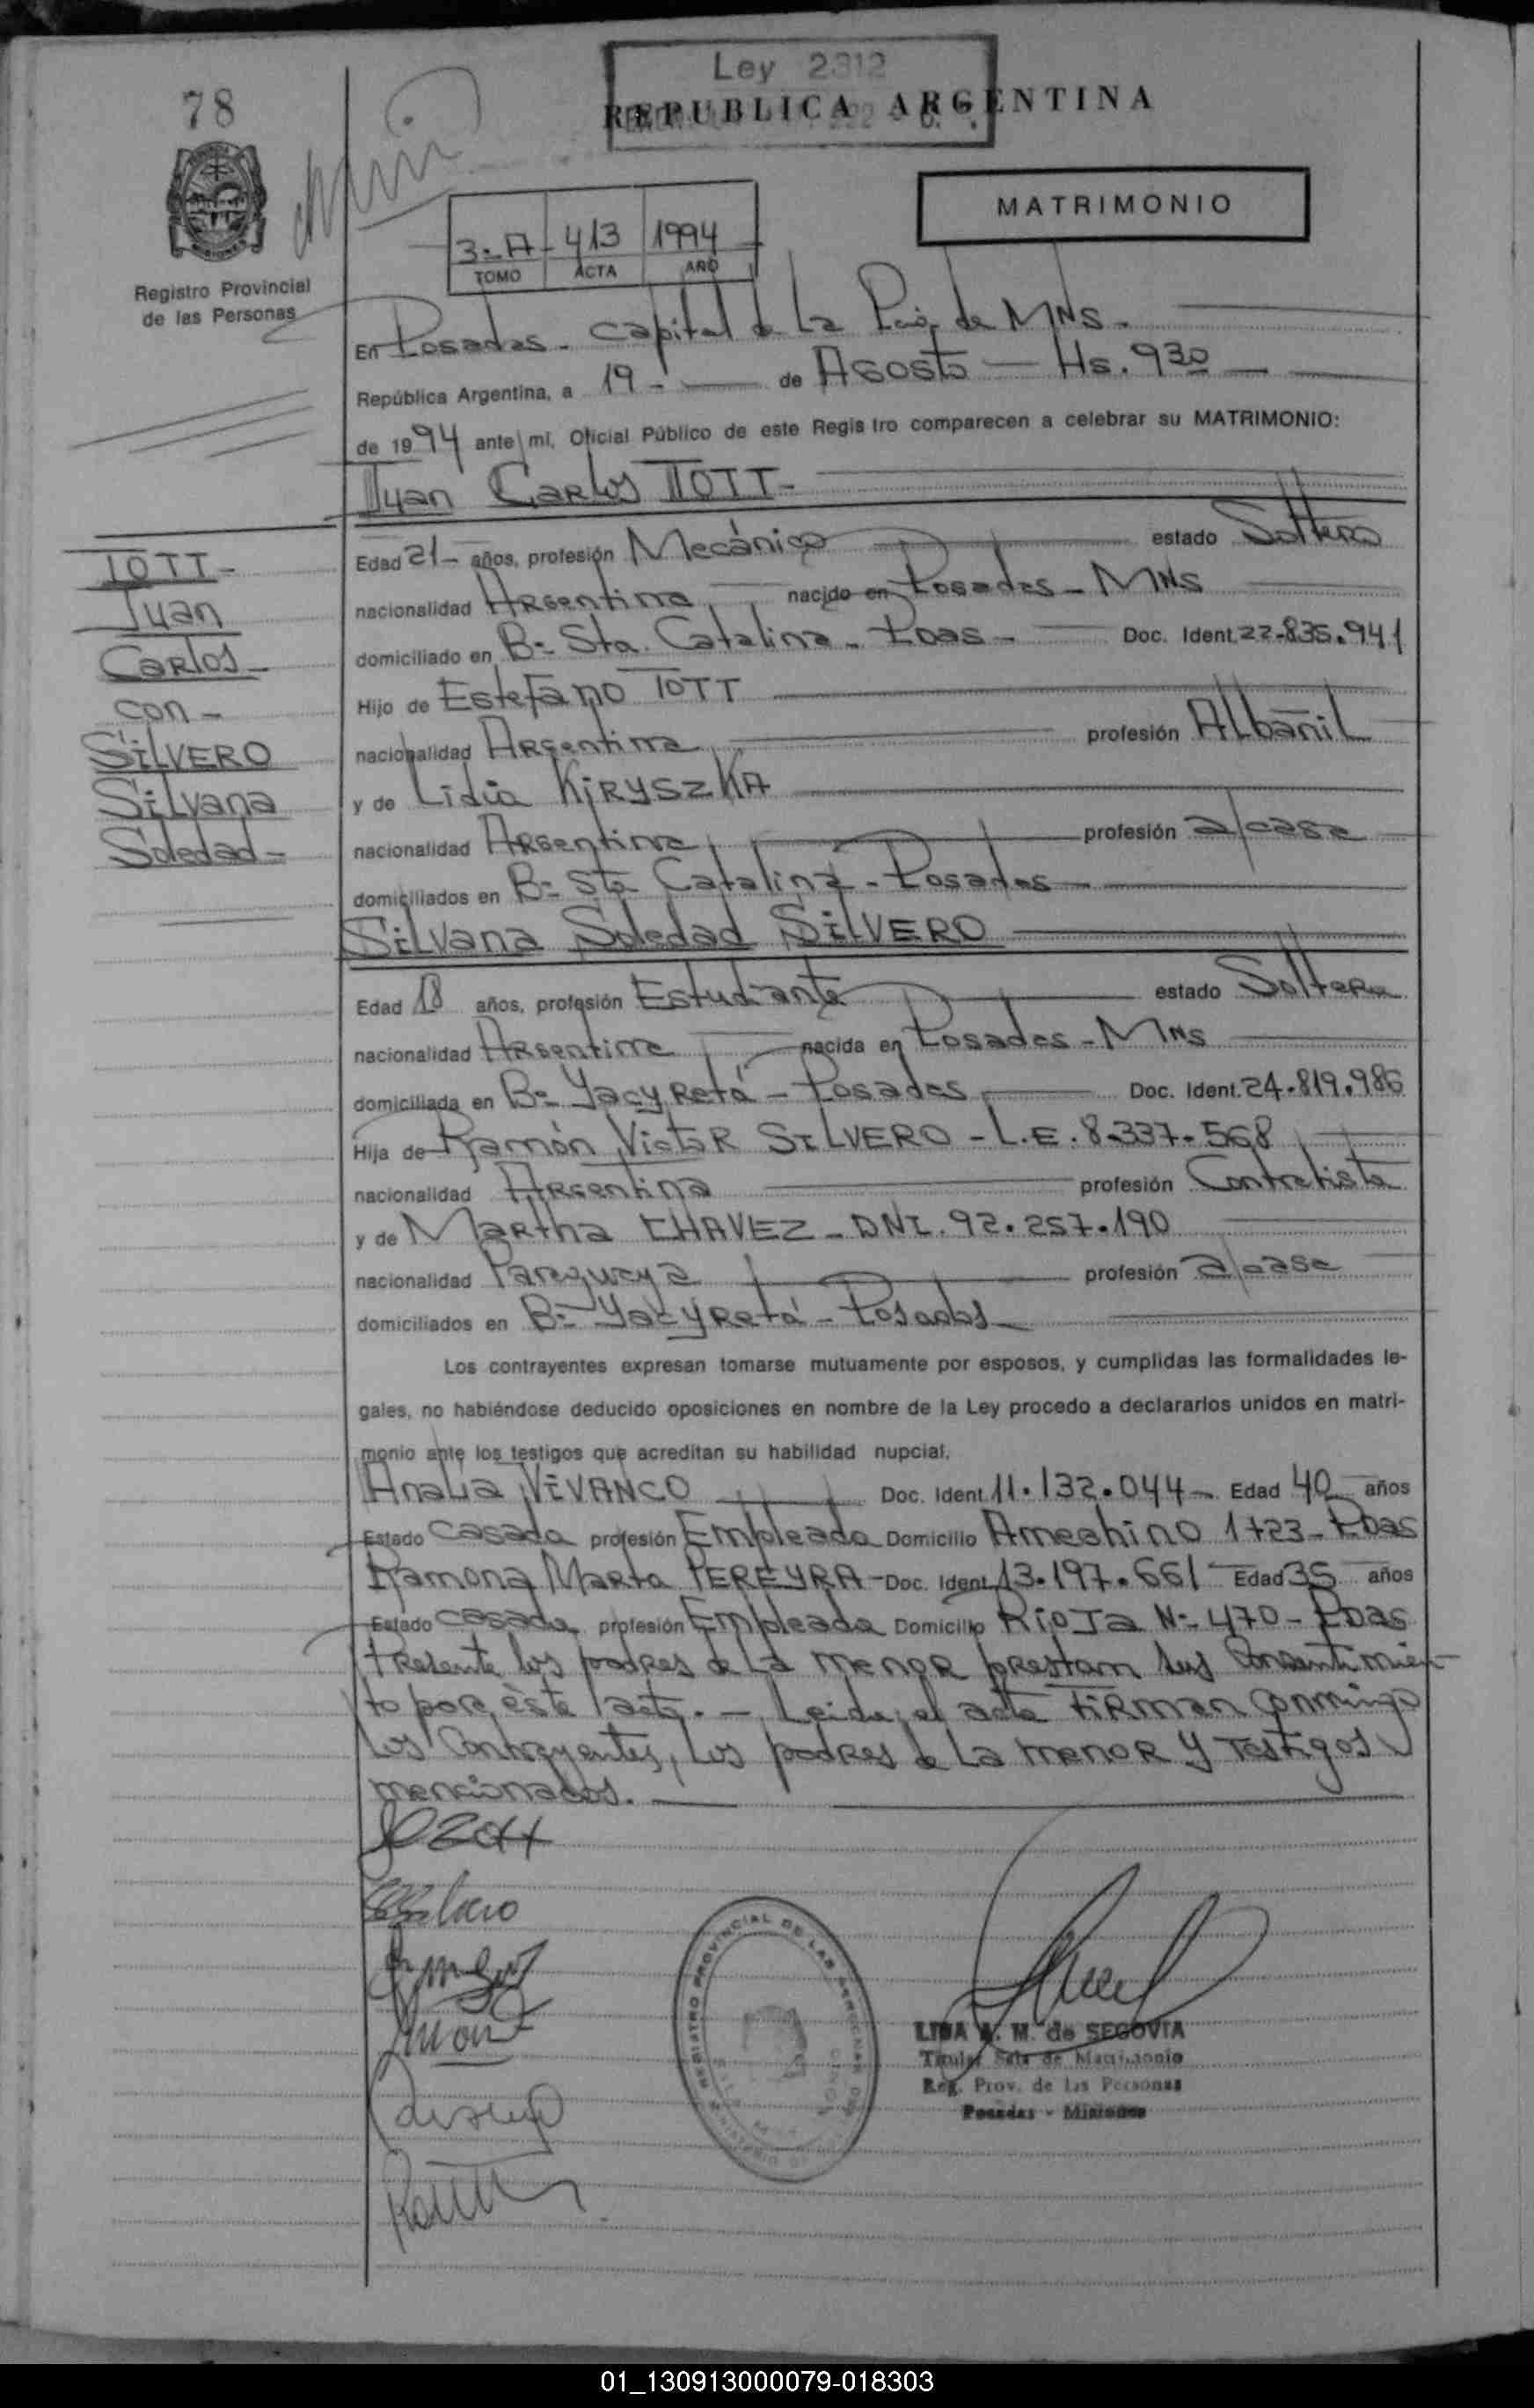 78
Ley 2312
REPUBLICA ARGENTINA
MATRIMONIO
3-A 413 1994
TOMO ACTA AÑO
Registro Provincial
de las Personas
En Posadas - Capital de la Pcia. de MNS.
República Argentina, a 19 - de Agosto - Hs. 930
de 1994 ante mí, Oficial Público de este Registro comparecen a celebrar su MATRIMONIO:
Juan Carlos TOTT -
TOTT -
Juan
Carlos -
con -
SILVERO
Silvana
Soledad -
Edad 21 - años, profesión Mecánico estado Soltero
nacionalidad Argentina, nacido en Posadas - MNS
domiciliado en Bº Sta. Catalina - Pdas - Doc. Ident. 22.835.941
Hijo de Estefano TOTT
nacionalidad Argentina, profesión Albañil
y de Lidia KIRYSZKA
nacionalidad Argentina, profesión a/casa
domiciliados en Bº Sta Catalina - Posadas -
Silvana Soledad SILVERO
Edad 18 años, profesión Estudiante estado Soltera
nacionalidad Argentina nacida en Posadas - MNS
domiciliada en Bº Yacyretá - Posadas Doc. Ident. 24.819.986
Hija de Ramón Victor SILVERO - L.E. 8.337.568
nacionalidad Argentina profesión Contratista
y de Martha CHAVEZ - DNI. 92.257.190
nacionalidad Paraguaya profesión a/casa
domiciliados en Bº Yacyretá - Posadas
Los contrayentes expresan tomarse mutuamente por esposos, y cumplidas las formalidades le-
gales, no habiéndose deducido oposiciones en nombre de la Ley procedo a declararlos unidos en matri-
monio ante los testigos que acreditan su habilidad nupcial.
Analia VIVANCO Doc. Ident. 11.132.044 - Edad 40 años
Estado Casada profesión Empleada Domicilio Ameghino 1723 - Pdas
Ramona Marta PEREYRA - Doc. Ident. 13.197.661 Edad 35 años
Estado casada profesión Empleada Domicilio Rioja Nº 470 - Pdas
Presente los padres de la menor prestam sus Consentimien-
to por éste acto. - Leida el acta FIRMAN conmigo
los Contrayentes, los padres de la menor y Testigos
mencionados.
REGISTRO PROVINCIAL DE LAS PERSONAS
LIDA A. M. de SEGOVIA
Titular Sala de Matrimonio
Reg. Prov. de las Personas
Posadas - Misiones
01_130913000079-018303